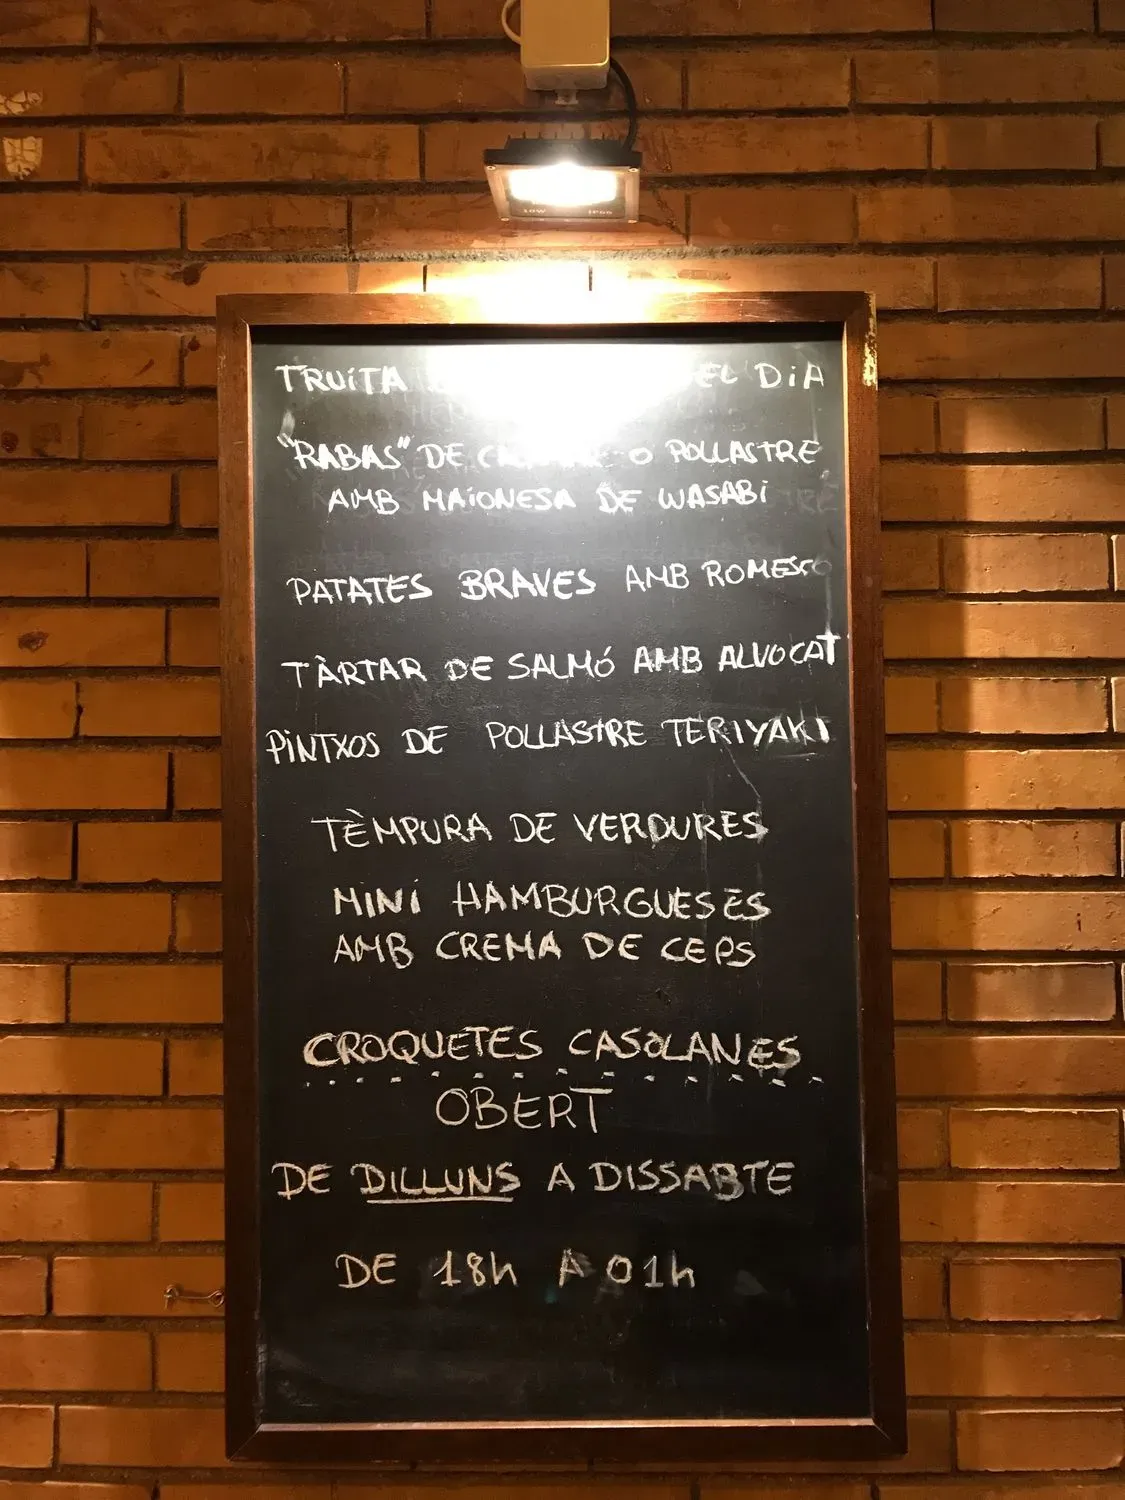 TRUITA EL DIA
"RABAS" DE O POLLASTRE
AMB MAIONESA DE WASABI
PATATES BRAVES AMB ROMESCO
TÀRTAR DE SALMÓ AMB ALVOCAT
PINTXOS DE POLLASTRE TERIYAKI
TÈMPURA DE VERDURES
MINI HAMBURGUESES
AMB CREMA DE CEPS
CROQUETES CASOLANES
OBERT
DE DILLUNS A DISSABTE
DE 18h A 01h